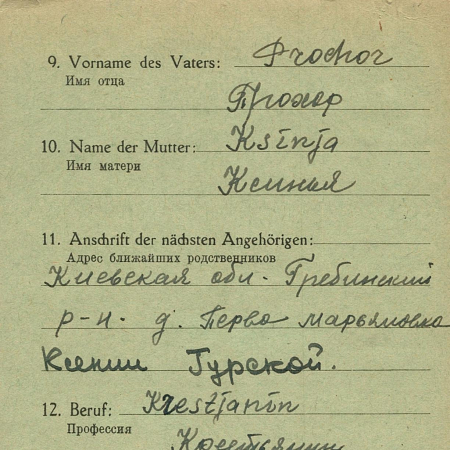 9. Vorname des Vaters: Prochor
Имя отца
Прохор
10. Name der Mutter: Ksinja
Имя матери
Ксиния
11. Anschrift der nächsten Angehörigen:
Адрес ближайших родственников
Киевская обл. Гребинский
р-н. д. Перво марьяновка
Ксении Гурской.
12. Beruf: Krestjanin
Профессия
Крестьянин